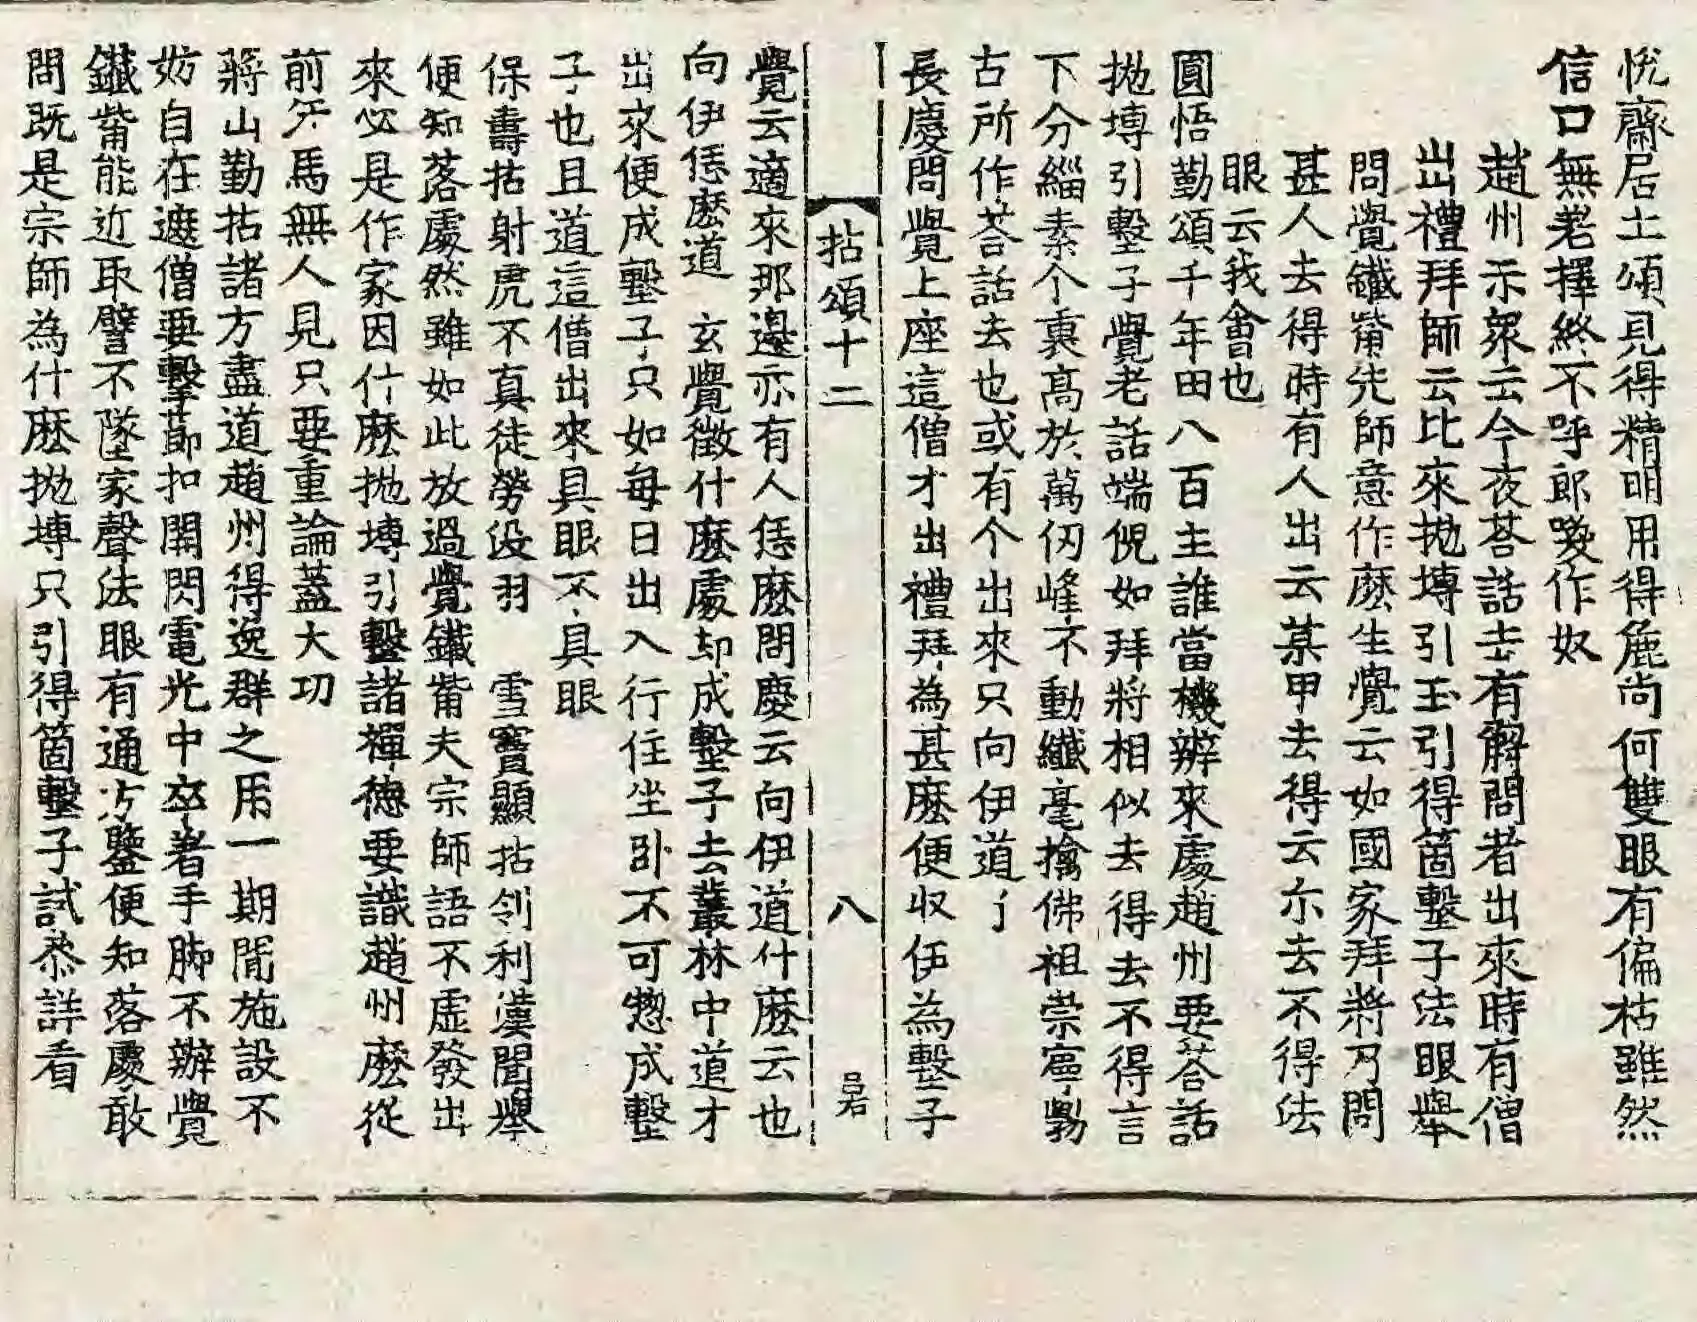 悅齋居士頌見得精明用得麁尚何雙眼有偏枯雖然
信口無著擇終不呼郎喚作奴
趙州示衆云今夜荅話去有解問者出來時有僧
出禮拜師云比來抛塼引玉引得箇墼子法眼舉
問覺鐵觜先師意作麽生覺云如國家拜將乃問
甚人去得時有人出云某甲去得云尒去不得法
眼云我會也
圓悟勤頌千年田八百主誰當機辨來處趙州要荅話
抛塼引墼子覺老話端倪如拜將相似去得去不得言
下分緇素个裏高於萬仞峰不動纖毫擒佛祖崇寧勤
古所作荅話去也或有个出來只向伊道了
長慶問覺上座這僧才出禮拜為甚麽便収伊為墼子
拈頌十二
八
呂石
覺云適來那邊亦有人恁麽問慶云向伊道什麽云也
向伊恁麽道 玄覺徵什麽處却成墼子去叢林中道才
出來便成墼子只如每日出入行住坐卧不可惣成墼
子也且道這僧出來具眼不具眼
保壽拈射虎不真徒勞没羽 雪竇顯拈灵利漢聞舉
便知落處然雖如此放過覺鐵觜夫宗師語不虛發出
來必是作家因什麽抛塼引墼諸禪德要識趙州麽從
前汗馬無人見只要重論蓋大功
蔣山勤拈諸方盡道趙州得逸群之用一期閒施設不
妨自在遮僧要擊節扣關閃電光中卒著手脚不辦覺
鐵觜能近取譬不墜家聲法眼有通方鑒便知落處敢
問既是宗師為什麽抛塼只引得箇墼子試叅詳看